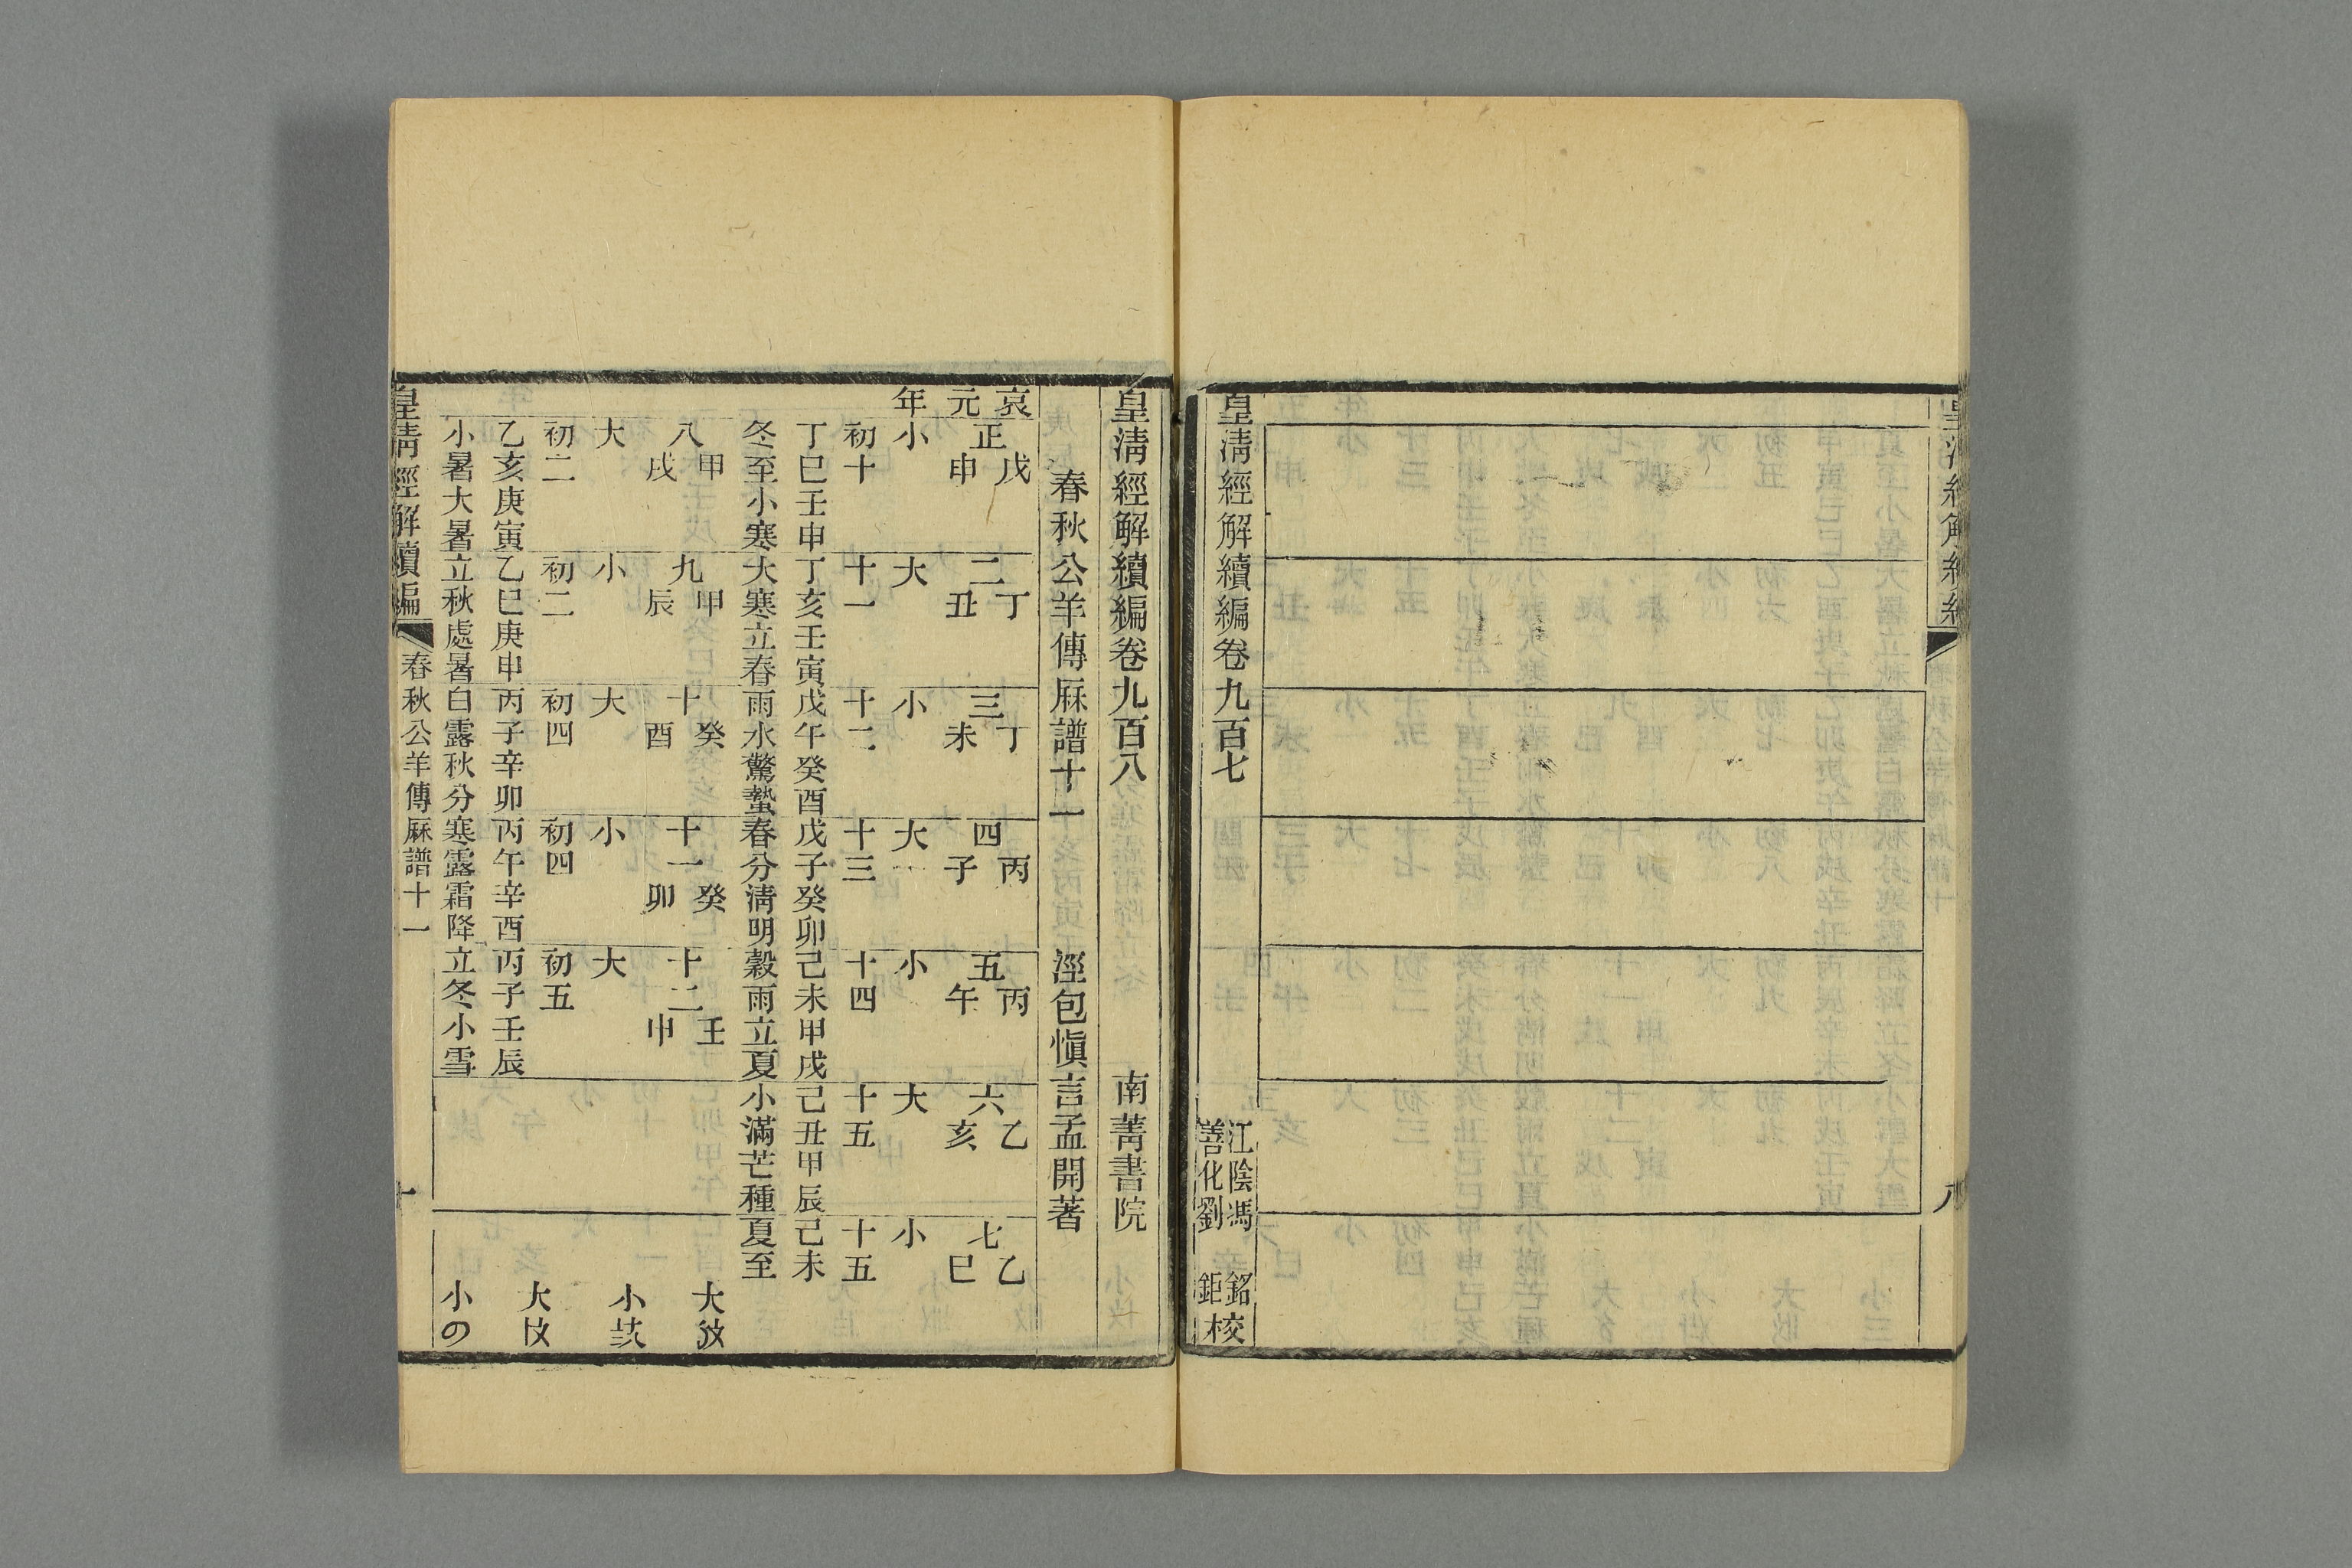 皇清經解續編
八
皇清經解續編卷九百七
江陰馮銘
善化劉鉅校
皇清經解續編卷九百八
南菁書院
春秋公羊傳厤譜十一
涇包愼言孟開著
哀元年
正
戊申
小
初十
丁巳壬申
冬至小寒
二
丁丑
大
十一
丁亥壬寅
大寒立春
三
丁未
小
十二
戊午癸酉
雨水驚蟄
四
丙子
大
十三
戊子癸卯
春分淸明
五
丙午
小
十四
己未甲戌
穀雨立夏
六
乙亥
大
十五
己丑甲辰
小滿芒種
七
乙巳
小
十五
己未
夏至
八
甲戌
大
初二
乙亥庚寅
小暑大暑
九
甲辰
小
初二
乙巳庚申
立秋處暑
十
癸酉
大
初四
丙子辛卯
白露秋分
十一
癸卯
小
初四
丙午辛酉
寒露霜降
十二
壬申
大
初五
丙子壬辰
立冬小雪
大
小
大
小
皇清經解續編
春秋公羊傳厤譜十一
一